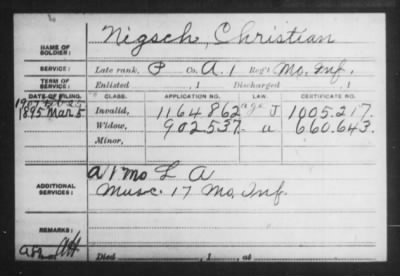 NAME OF SOLDIER: Nigsch, Christian
SERVICE: Late rank, P Co. A. 1 Reg't Mo. Inf.
TERM OF SERVICE: Enlisted , 1 Discharged , 1
DATE OF FILING. CLASS. APPLICATION NO. LAW. CERTIFICATE NO.
1907 Invalid, 1164862 age J 1005.217.
1895 Mar. 5 Widow, 902537. a 660.643.
Minor,
ADDITIONAL SERVICES: A 1 Mo L A
Musc. 17 Mo. Inf.
REMARKS:
Died , 1 , at